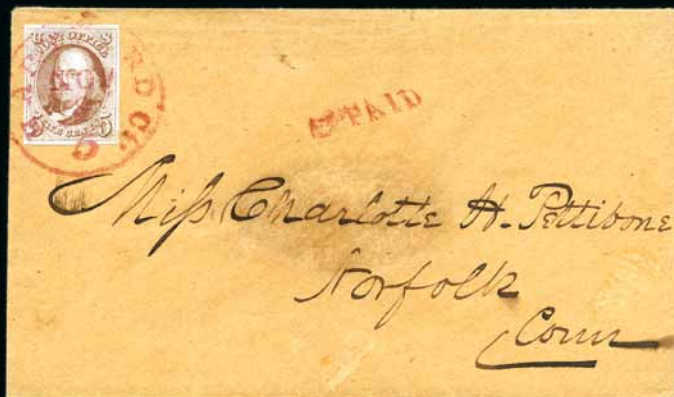 POST OFFICE
FIVE CENTS
5
PAID
Miss Charlotte H. Pettibone
Norfolk
Conn